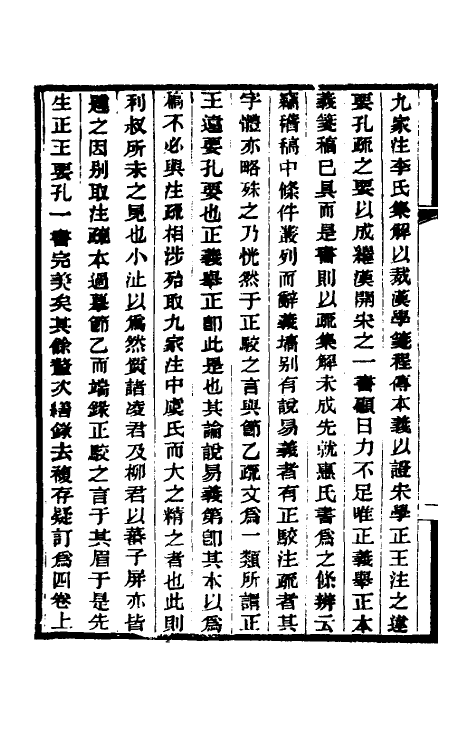 九家注李氏集解以裁漢學箋程傳本義以證朱學正王注之違
要孔疏之要以成繼漢開宋之一書顧日力不足唯正義舉正本
義箋稿已具而是書則以疏集解未成先就惠氏書爲之條辨云
竊稽稿中條件叢列而辭義塙别有說易義者有正駮注疏者其
字體亦略殊之乃恍然于正駮之言與節乙疏文爲一類所謂正
王違要孔要也正義舉正卽此是也其論說易義第卽其本以爲
稿不必與注疏相涉殆取九家注中虞氏而大之精之者也此則
利叔所未之見也小沚以爲然質諸凌君及柳君以蕃子屏亦皆
題之因别取注疏本過摹節乙而端錄正駮之言于其眉于是先
生正王要孔一書完美矣其餘釐次繕錄去複存疑訂爲四卷上